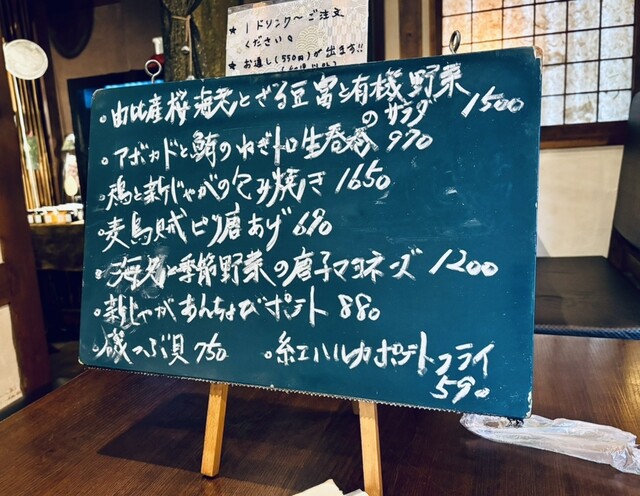 ★ 1ドリンク〜ご注文
ください。
★ お通し(550円)が出ます!!
・由比産桜海老とざる豆富と有機野菜
のサラダ 1500
・アボカドと鮪のねぎトロ生春巻 970
・鶏と新じゃがの包み焼き 1650
・麦烏賊ピリ唐あげ 690
・海老と季節野菜の唐子マヨネーズ 1200
・新じゃがあんちょびポテト 880
・磯つぶ貝 750 ・紅ハルカポテトフライ
590